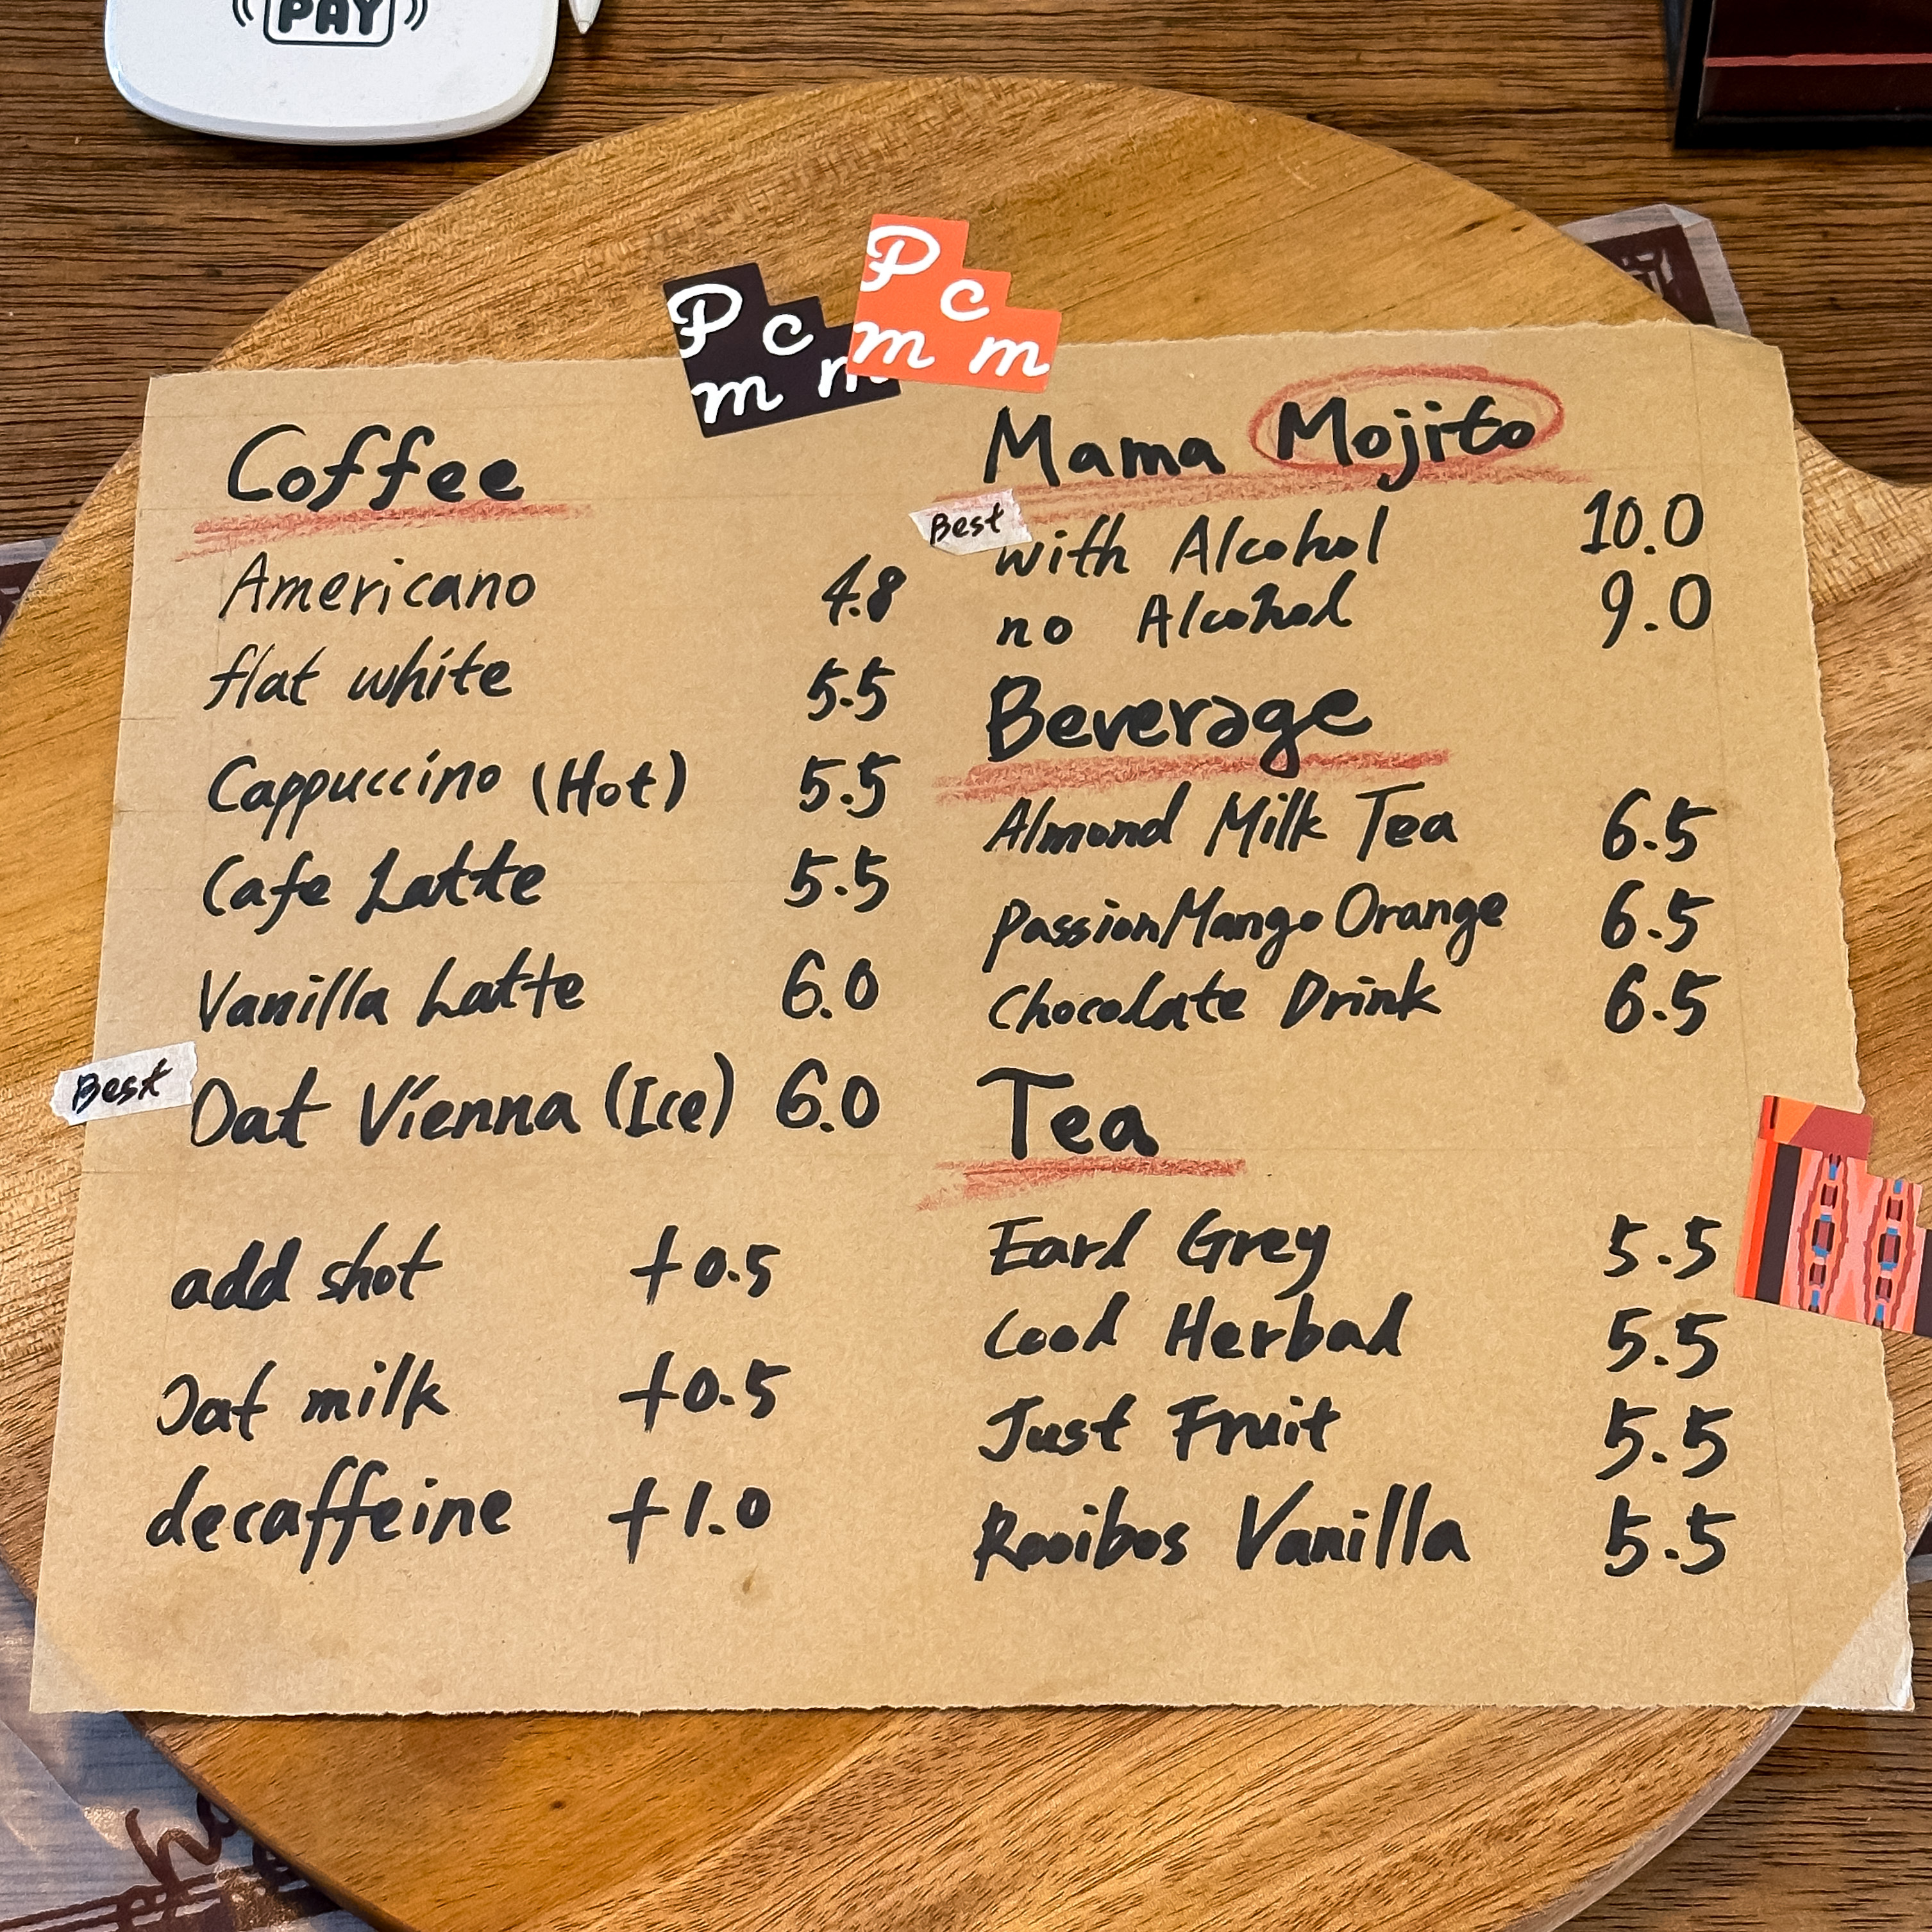 PAY
P c
m m
P c
m m
Coffee
Americano 4.8
flat white 5.5
Cappuccino (Hot) 5.5
Cafe Latte 5.5
Vanilla Latte 6.0
Best Oat Vienna (Ice) 6.0
add shot +0.5
Oat milk +0.5
decaffeine +1.0
Mama Mojito
Best with Alcohol 10.0
no Alcohol 9.0
Beverage
Almond Milk Tea 6.5
Passion Mango Orange 6.5
Chocolate Drink 6.5
Tea
Earl Grey 5.5
Cool Herbal 5.5
Just Fruit 5.5
Rooibos Vanilla 5.5